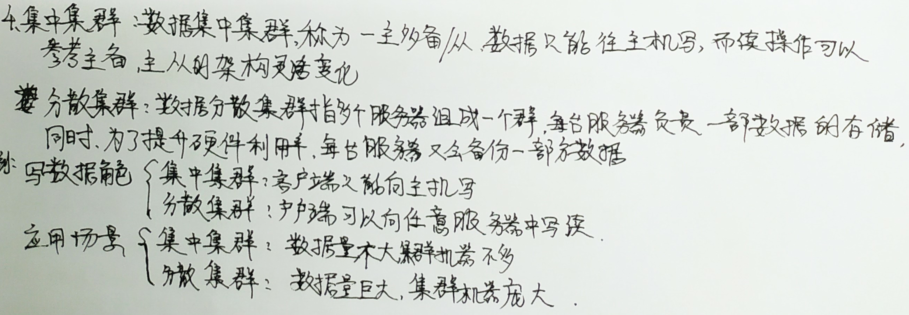 4.集中集群：数据集中集群，称为一主多备/从 数据只能往主机写，而读操作可以
参考主备，主从的架构灵活变化
分散集群：数据分散集群指多个服务器组成一个群，每台服务器负责一部数据的存储，
同时，为了提升硬件利用率，每台服务器又会备份一部分数据
写数据角色 { 集中集群：客户端只能向主机写
分散集群：户端可以向任意服务器中写读.
应用场景 { 集中集群：数据量不大集群机器不多
分散集群：数据量巨大，集群机器庞大.